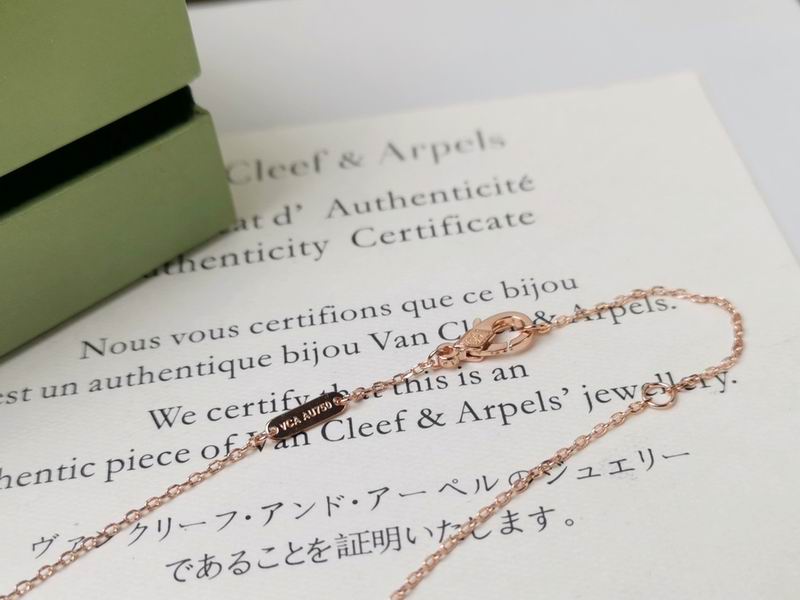 Cleef & Arpels
at d' Authenticité
uthenticity Certificate
Nous vous certifions que ce bijou
est un authentique bijou Van Cl & Arpels.
We certify that this is an
hentic piece of Van Cleef & Arpels' jewellery.
ヴァンクリーフ・アンド・アーペルのジュエリー
であることを証明いたします。
VCA AU750